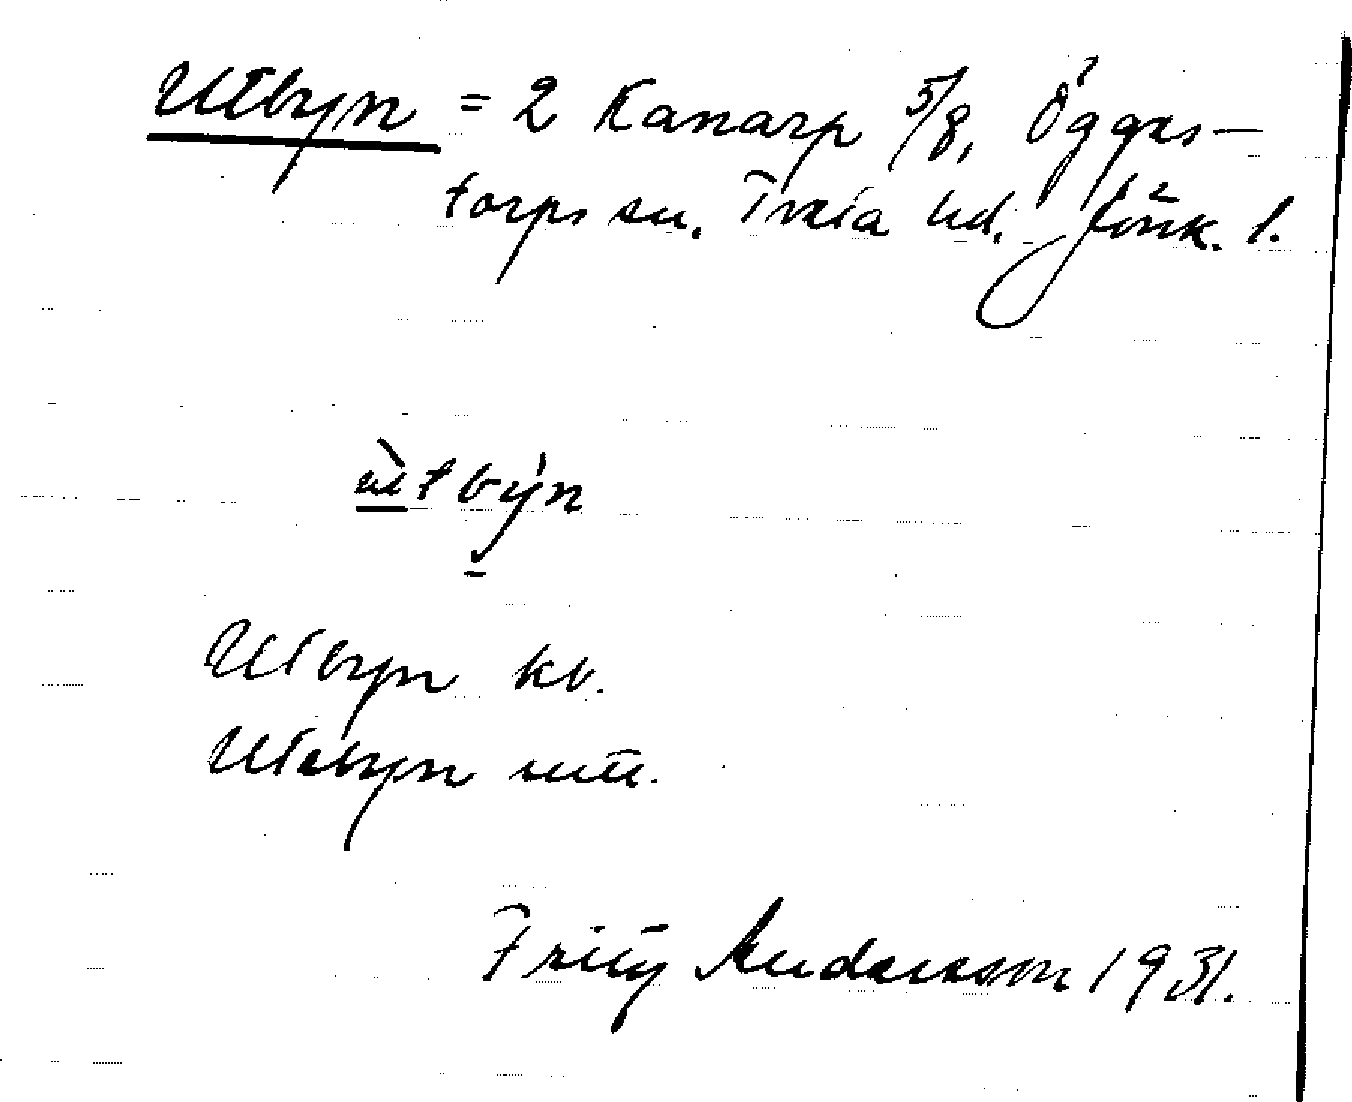 Utbyn = 2 Kanarp 5/8, Ögges-
torps sn. Tveta hd. Jönk. l.
ùtby´n
Utbyn kv.
Utbyn
Fritz Andersson 1931.